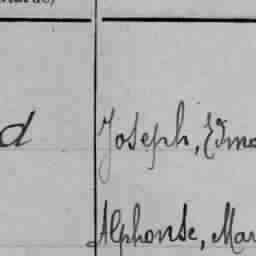 d Joseph, Edmo
Alphonse, Mar